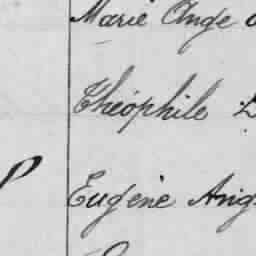 Marie Ange
Théophile
P
Eugène Aug